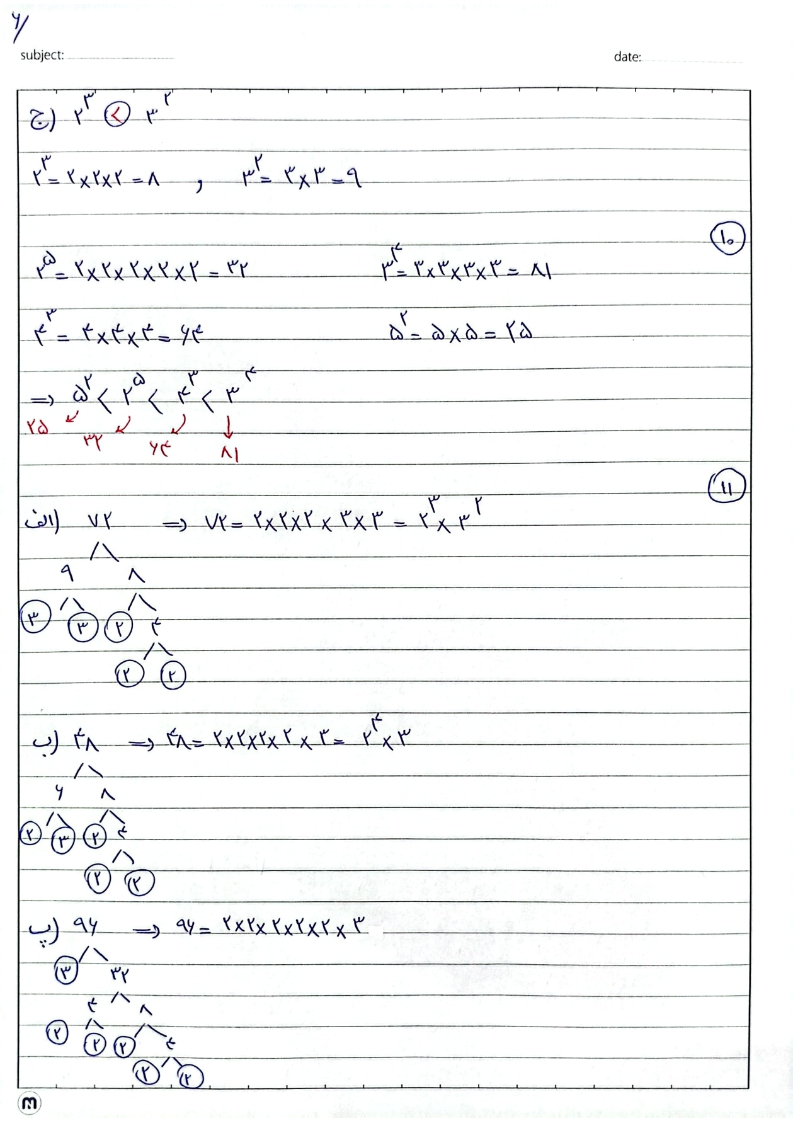 ۶/
subject:
date:
ج) ۲^۳ < ۳^۲
۲^۳ = ۲×۲×۲ = ۸ , ۳^۲ = ۳×۳ = ۹
۱۰
۲^۵ = ۲×۲×۲×۲×۲ = ۳۲ ۳^۴ = ۳×۳×۳×۳ = ۸۱
۴^۳ = ۴×۴×۴ = ۶۴ ۵^۲ = ۵×۵ = ۲۵
⇒ ۵^۲ < ۲^۵ < ۴^۳ < ۳^۴
۲۵ ۳۲ ۶۴ ۸۱
۱۱
الف) ۷۲ ⇒ ۷۲ = ۲×۲×۲×۳×۳ = ۲^۳ × ۳^۲
۹ ۸
۳ ۳ ۲ ۴
۲ ۲
ب) ۴۸ ⇒ ۴۸ = ۲×۲×۲×۲×۳ = ۲^۴ × ۳
۶ ۸
۲ ۳ ۲ ۴
۲ ۲
پ) ۹۶ ⇒ ۹۶ = ۲×۲×۲×۲×۲×۳
۳ ۳۲
۴ ۸
۲ ۲ ۲ ۴
۲ ۲
m